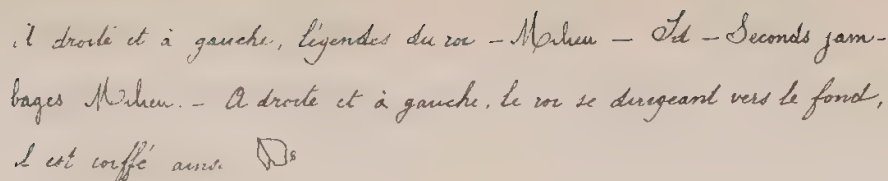 à droite et à gauche, légendes du roi - Milieu - Id - Seconds jam-
bages Milieu. - A droite et à gauche, le roi se dirigeant vers le fond,
il est coiffé ainsi